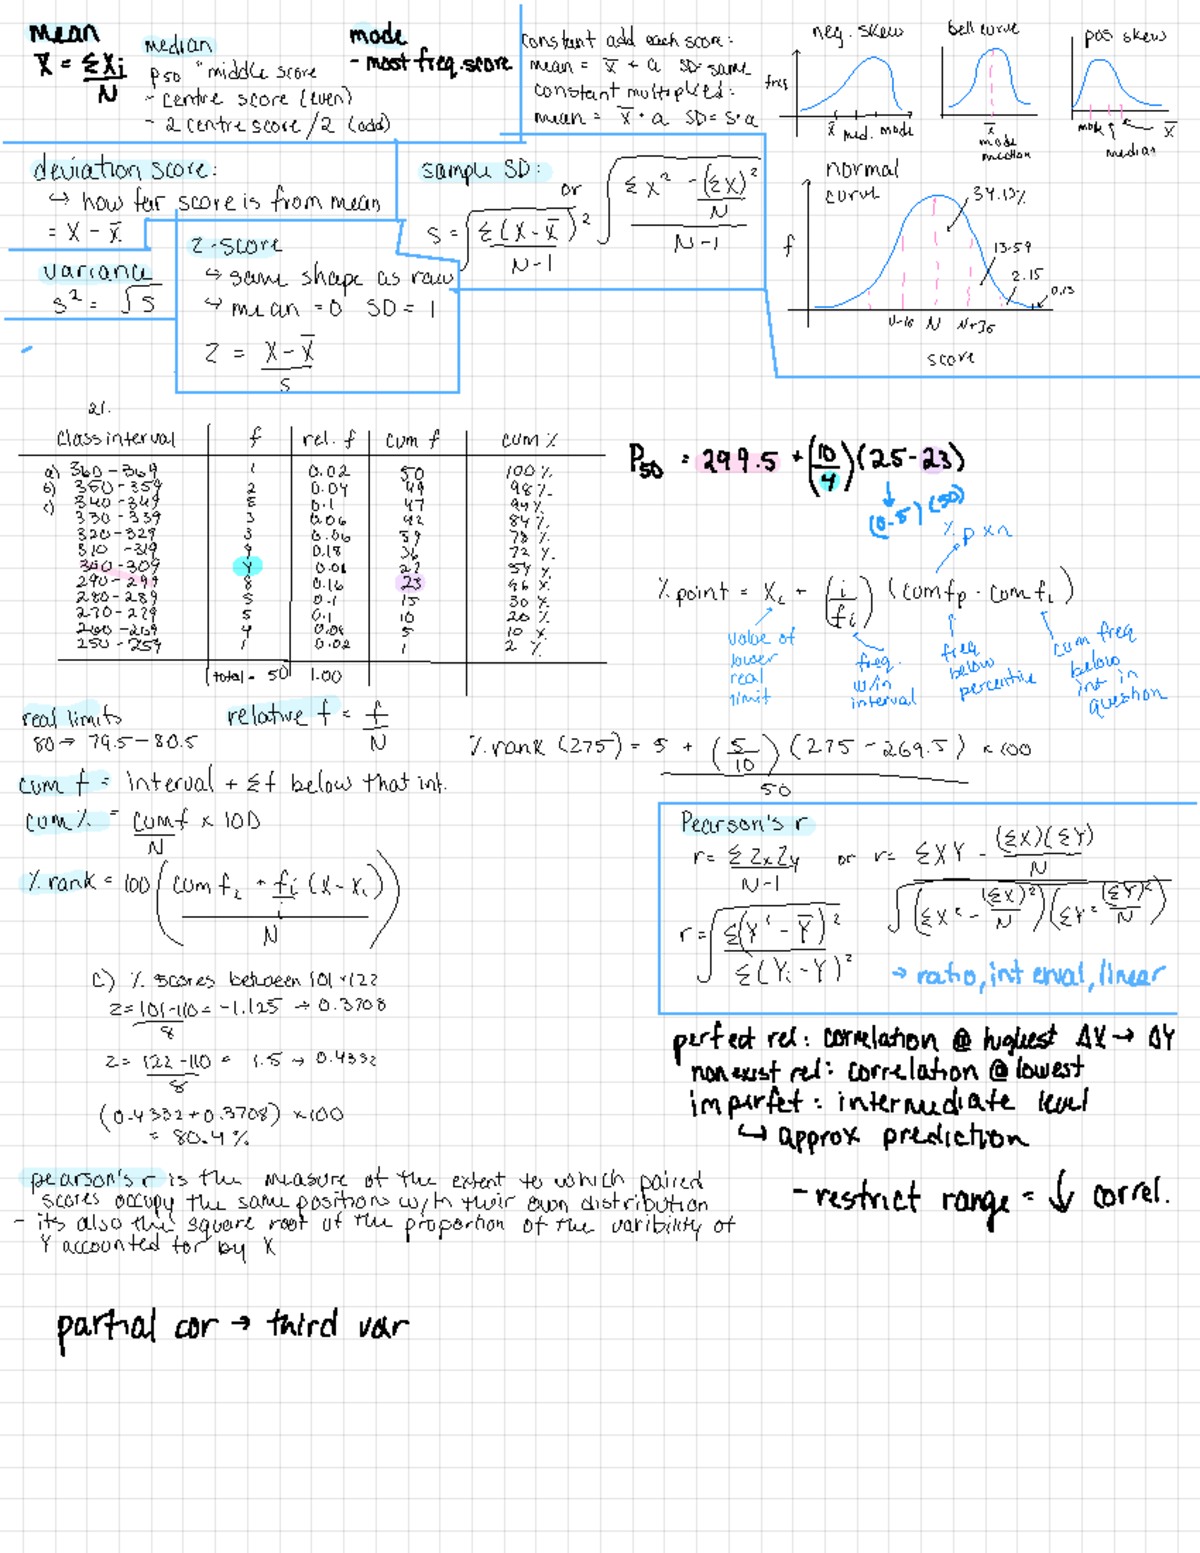 mean
X̄ = ΣXi
N
median
P50 "middle score
- centre score (even)
- 2 centre score/2 (odd)
mode
- most freq. score
constant add each score:
mean = x̄ + a SD= same
constant multiplied:
mean = x̄ · a SD= s·a
neg. skew
freq
x̄ med. mode
bell curve
x̄
mode
median
pos skew
mode x̄
median
deviation score:
↳ how far score is from mean
= X - x̄
variance
s² = √s
z-score
↳ same shape as raw
↳ mean = 0 SD = 1
z = X - X̄
s
sample SD:
s = √Σ(X-X̄)²
N-1
or √Σx² - (Σx)²
N
N-1
normal
curve
f
34.13%
13.59
2.15
0.13
N
score
21.
class interval f rel. f cum f cum %
a) 360-369 1 0.02 50 100%
b) 350-359 2 0.04 49 98%
c) 340-349 5 0.1 47 94%
330-339 3 0.06 42 84%
320-329 3 0.06 39 78%
310-319 9 0.18 36 72%
300-309 4 0.08 27 54%
290-299 8 0.16 23 46%
280-289 5 0.1 15 30%
270-279 5 0.1 10 20%
260-269 4 0.08 5 10%
250-259 1 0.02 1 2%
total = 50 1.00
P50 = 299.5 + (10/4)(25-23)
(0.5)(50)
% p x n
% point = XL + (i/fi)(cum fp - cum fL)
value of
lower
real
limit
freq.
w/in
interval
freq
below
percentile
cum freq
below
int in
question
real limits
80 → 79.5 - 80.5
relative f = f
N
cum f = interval + Σf below that int.
cum % = cumf x 100
N
% rank = 100(cum fL + fi/i (X - XL))
N
% rank (275) = 5 + (5/10)(275 - 269.5) x 100
50
Pearson's r
r = ΣZxZy
N-1
or r = ΣXY - (ΣX)(ΣY)
N
√(ΣX² - (ΣX)²/N)(ΣY² - (ΣY)²/N)
r = √Σ(Y' - Ȳ)²
Σ(Yi - Y)²
→ ratio, interval, linear
c) % scores between 101+122
z = 101-110 = -1.125 → 0.3708
8
z = 122-110 = 1.5 → 0.4332
8
(0.4332 + 0.3708) x 100
= 80.4%
perfect rel: correlation @ highest ΔX → ΔY
nonexist rel: correlation @ lowest
imperfet: intermediate level
↳ approx prediction
pearson's r is the measure of the extent to which paired
scores occupy the same positions w/in their own distribution
- its also the square root of the proportion of the varibility of
Y accounted for by X
- restrict range = ↓ correl.
partial cor → third var